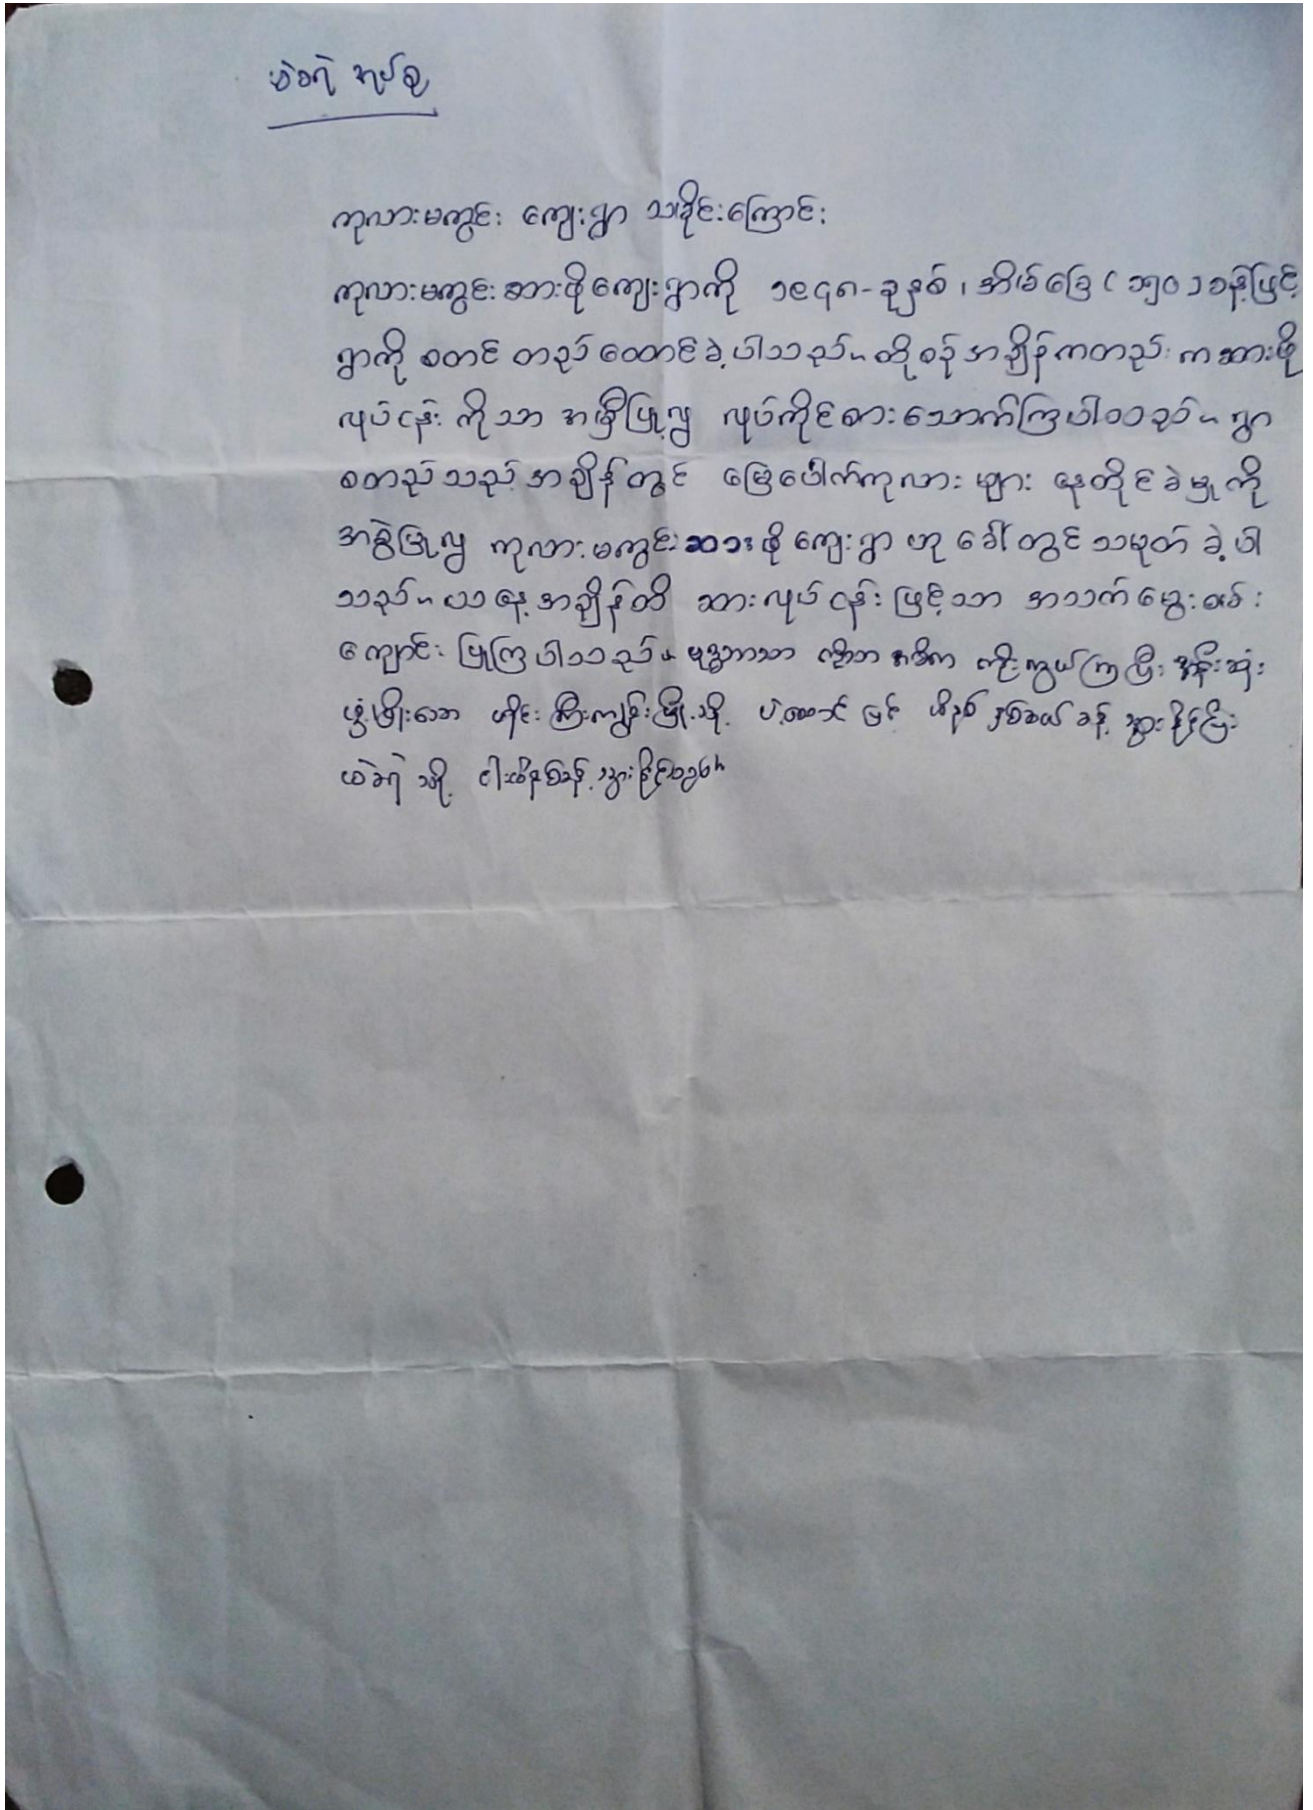 ယဲခရဲ အုပ်စု
ကုလားမကွင်း ကျေးရွာ သမိုင်းကြောင်း
ကုလားမကွင်းဆားဖိုကျေးရွာကို ၁၉၄၈-ခုနှစ်၊ အိမ်ခြေ (၁၅၀) ခန့်ဖြင့်
ရွာကို စတင် တည်ထောင်ခဲ့ပါသည်။ ထိုစဉ်အချိန်ကတည်းက ဆားဖို
လုပ်ငန်း ကိုသာ အမှီပြု၍ လုပ်ကိုင်စားသောက်ကြပါသည်။ ရွာ
စတည်သည့်အချိန်တွင် မြေပေါက်ကုလား များ နေထိုင်ခဲ့မှုကို
အစွဲပြု၍ ကုလားမကွင်းဆားဖိုကျေးရွာ ဟု ခေါ်တွင်သမုတ်ခဲ့ပါ
သည်။ ယနေ့အချိန်ထိ ဆားလုပ်ငန်း ဖြင့်သာ အသက်မွေးဝမ်း
ကျောင်း ပြုကြပါသည်။ ဗုဒ္ဓဘာသာ ကိုးကွယ်ကြပြီး
ဟိုင်းကြီးကျွန်းမြို့သို့ ဖြင့် မိနစ် ရှစ်ဆယ်ခန့် သွားနိုင်ပြီး
ယဲခရဲ သို့ ငါးမိနစ်ခန့် သွားနိုင်သည်။